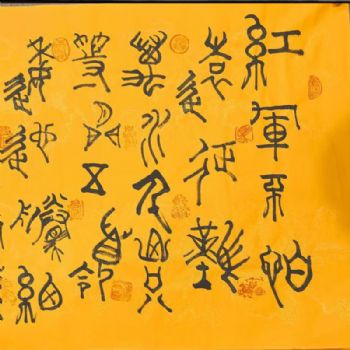 紅軍不怕
遠征難
萬水千山只
等閒五嶺
逶迤騰細